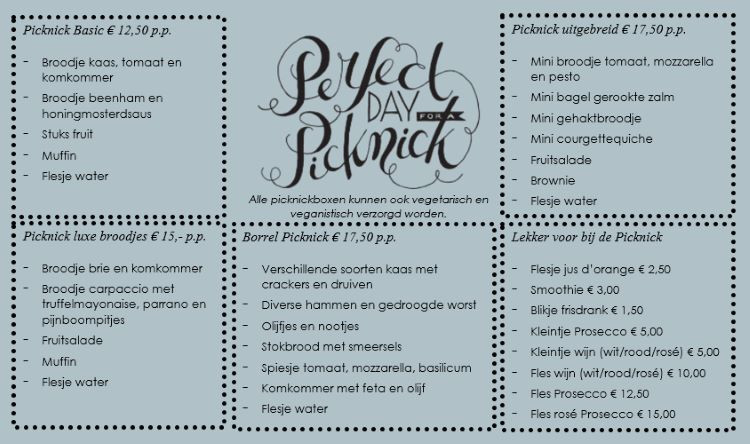 Picknick Basic € 12,50 p.p.
- Broodje kaas, tomaat en
komkommer
- Broodje beenham en
honingmosterdsaus
- Stuks fruit
- Muffin
- Flesje water
Perfect
DAY FOR A
Picknick
Alle picknickboxen kunnen ook vegetarisch en
veganistisch verzorgd worden.
Picknick uitgebreid € 17,50 p.p.
- Mini broodje tomaat, mozzarella
en pesto
- Mini bagel gerookte zalm
- Mini gehaktbroodje
- Mini courgettequiche
- Fruitsalade
- Brownie
- Flesje water
Picknick luxe broodjes € 15,- p.p.
- Broodje brie en komkommer
- Broodje carpaccio met
truffelmayonaise, parrano en
pijnboompitjes
- Fruitsalade
- Muffin
- Flesje water
Borrel Picknick € 17,50 p.p.
- Verschillende soorten kaas met
crackers en druiven
- Diverse hammen en gedroogde worst
- Olijfjes en nootjes
- Stokbrood met smeersels
- Spiesje tomaat, mozzarella, basilicum
- Komkommer met feta en olijf
- Flesje water
Lekker voor bij de Picknick
- Flesje jus d'orange € 2,50
- Smoothie € 3,00
- Blikje frisdrank € 1,50
- Kleintje Prosecco € 5,00
- Kleintje wijn (wit/rood/rosé) € 5,00
- Fles wijn (wit/rood/rosé) € 10,00
- Fles Prosecco € 12,50
- Fles rosé Prosecco € 15,00